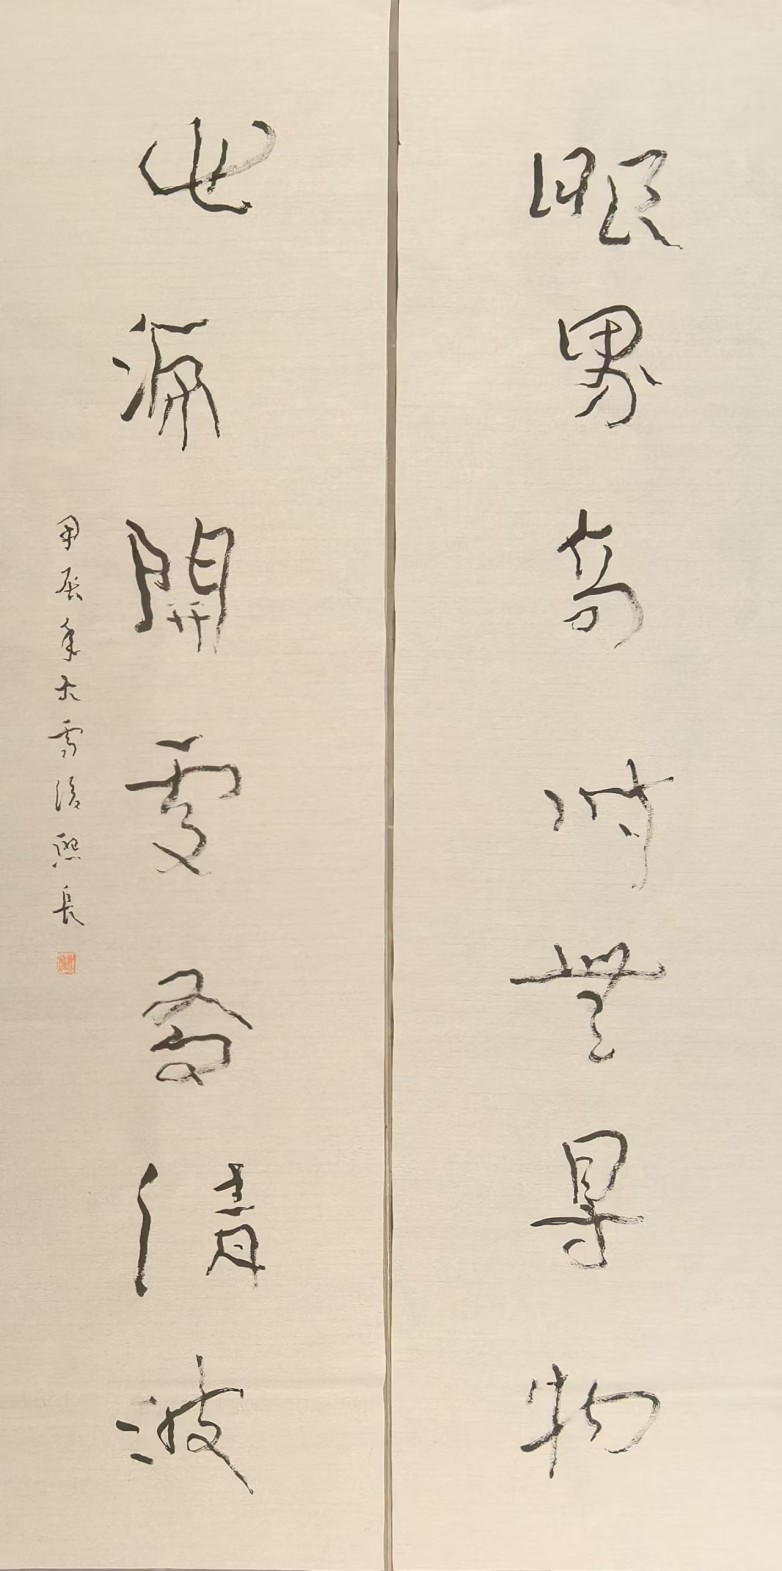 眼界高時無㝵物
心源開處有清波
甲辰年大雪後熙長